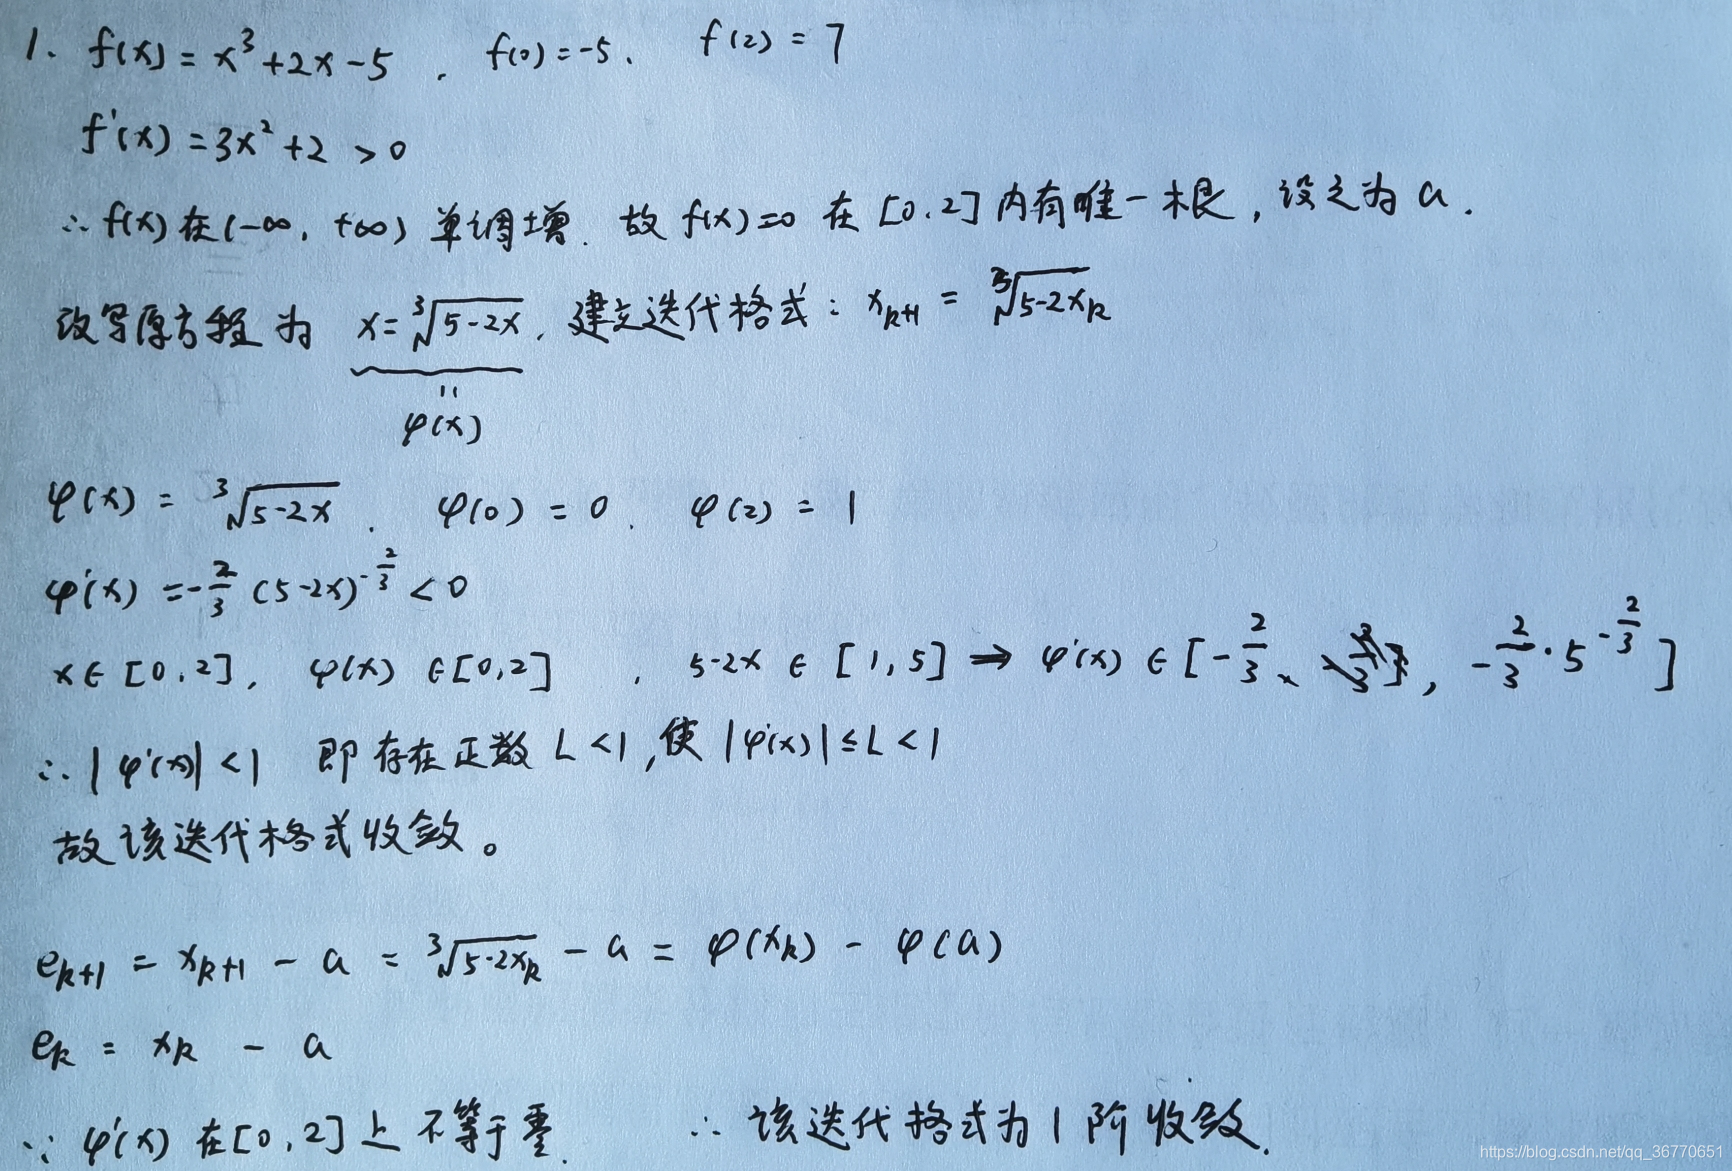 1. f(x) = x³+2x-5 , f(0)=-5, f(2)=7
f'(x) = 3x²+2 > 0
∴ f(x) 在(-∞, +∞) 单调增. 故 f(x)=0 在 [0,2] 内有唯一根, 设之为 a.
改写原方程为 x=∛(5-2x), 建立迭代格式: x_{k+1} = ∛(5-2x_k)
"
φ(x)
φ(x) = ∛(5-2x) . φ(0) = 0. φ(2) = 1
φ'(x) = -2/3 (5-2x)^{-2/3} < 0
x∈[0,2], φ(x) ∈[0,2] , 5-2x ∈ [1,5] ⇒ φ'(x) ∈ [-2/3, -2/3·5^{-2/3}]
∴ |φ'(x)| <1 即存在正数 L <1, 使 |φ'(x)| ≤ L < 1
故该迭代格式收敛。
e_{k+1} = x_{k+1} - a = ∛(5-2x_k) - a = φ(x_k) - φ(a)
e_k = x_k - a
∵ φ'(x) 在[0,2]上不等于零. ∴ 该迭代格式为1阶收敛.
https://blog.csdn.net/qq_36770651